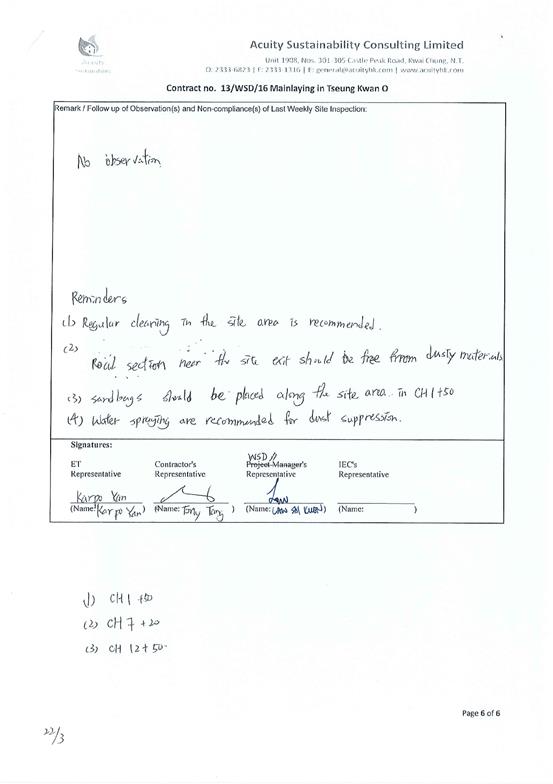 Acuity
Sustainability
Acuity Sustainability Consulting Limited
Unit 1908, Nos. 301-305 Castle Peak Road, Kwai Chung, N.T.
O: 2333-6823 | F: 2333-1316 | E: general@acuityhk.com | www.acuityhk.com
Contract no. 13/WSD/16 Mainlaying in Tseung Kwan O
Remark / Follow up of Observation(s) and Non-compliance(s) of Last Weekly Site Inspection:
No observation
Reminders
(1) Regular cleaning in the site area is recommended.
(2)
Road section near the site exit should be free from dusty materials
(3) sandbags should be placed along the site area in CH 1+50
(4) Water spraying are recommended for dust suppression.
Signatures:
WSD
ET Contractor's Project Manager's IEC's
Representative Representative Representative Representative
Karpo Yan
(Name: Karpo Yan) (Name: Tony Tang) (Name: ) (Name: )
(1) CH 1 +50
(2) CH 7 +20
(3) CH 12+50
Page 6 of 6
22/3